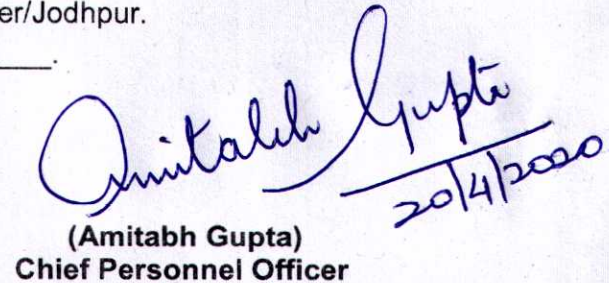 er/Jodhpur.
Amitabh Gupta
20/4/2020
(Amitabh Gupta)
Chief Personnel Officer